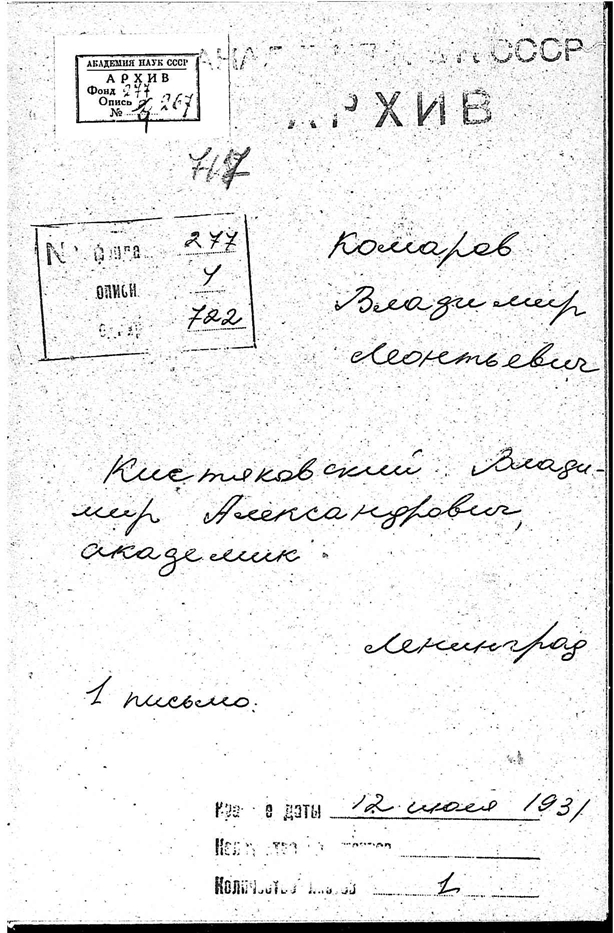 АКАДЕМИЯ НАУК СССР
АРХИВ
Фонд 277
Опись 4
№ 267
СССР
АРХИВ
717
№ фонда 277
описи 4
722
Комаров
Владимир
Леонтьевич
Кистяковский Влади-
мир Александрович,
академик
Ленинград
1 письмо.
Кра е даты 12 июля 1931
Количество листов 1